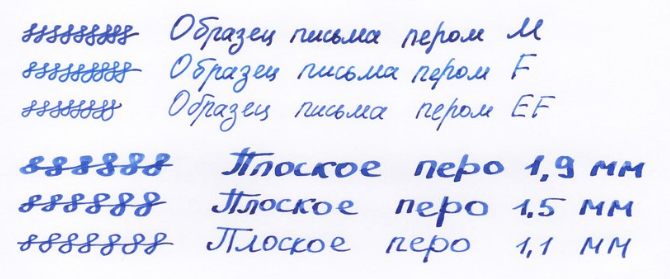 Образец письма пером M
Образец письма пером F
Образец письма пером EF
Плоское перо 1,9 мм
Плоское перо 1.5 мм
Плоское перо 1,1 мм